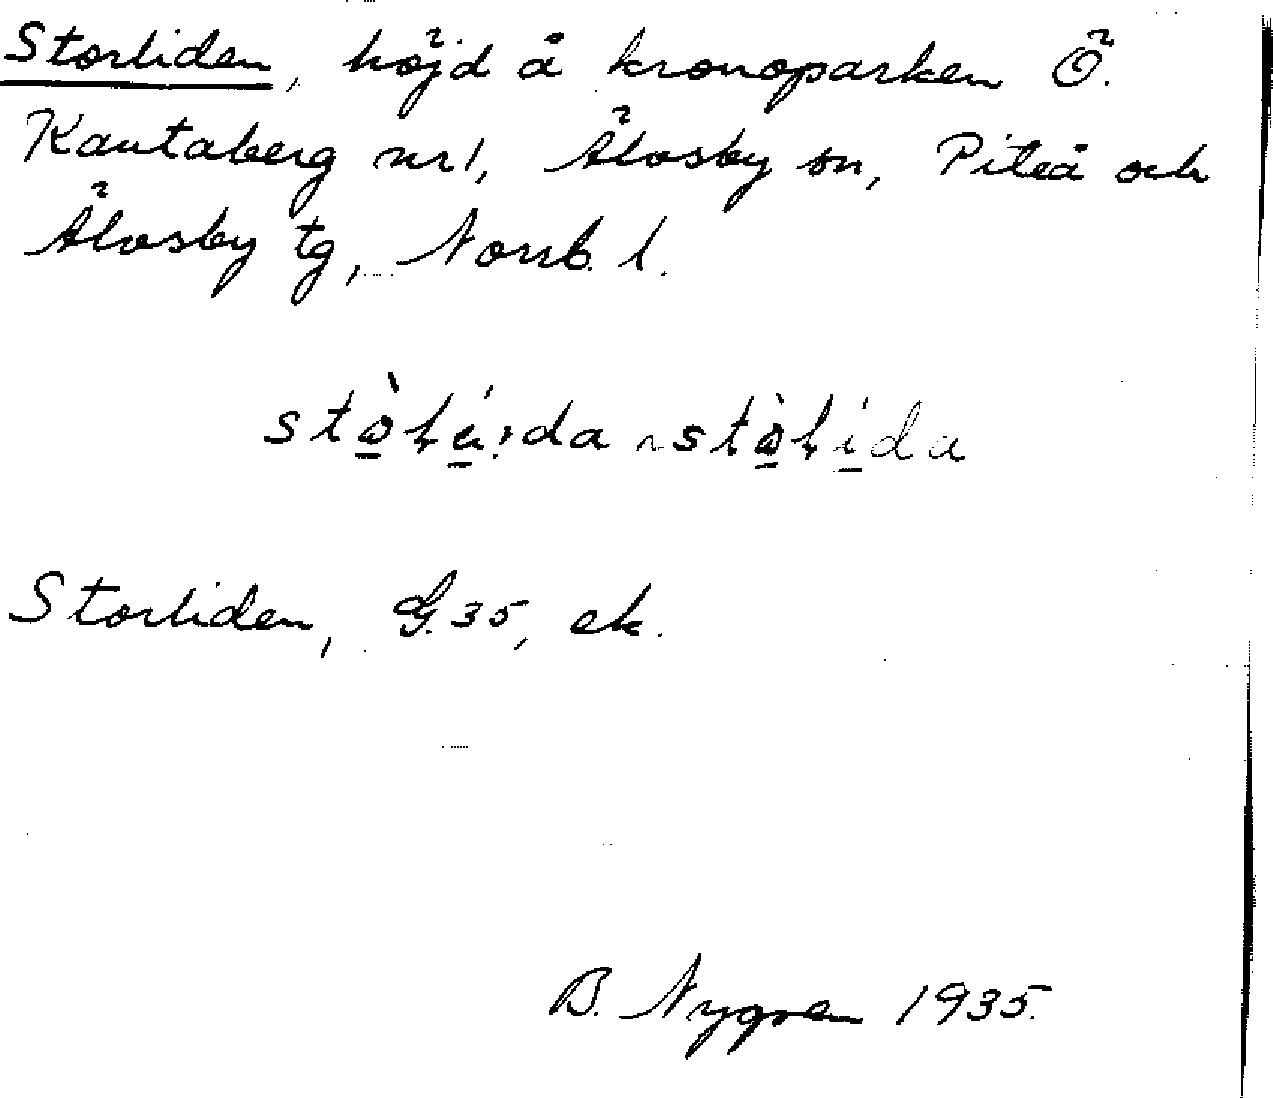 Storliden, höjd å kronoparken Ö.
Kantaberg nr 1, Älvsby sn, Piteå och
Älvsby tg, Norrb. l.
Storliden, G. 35, ek.
B. Nygren 1935.